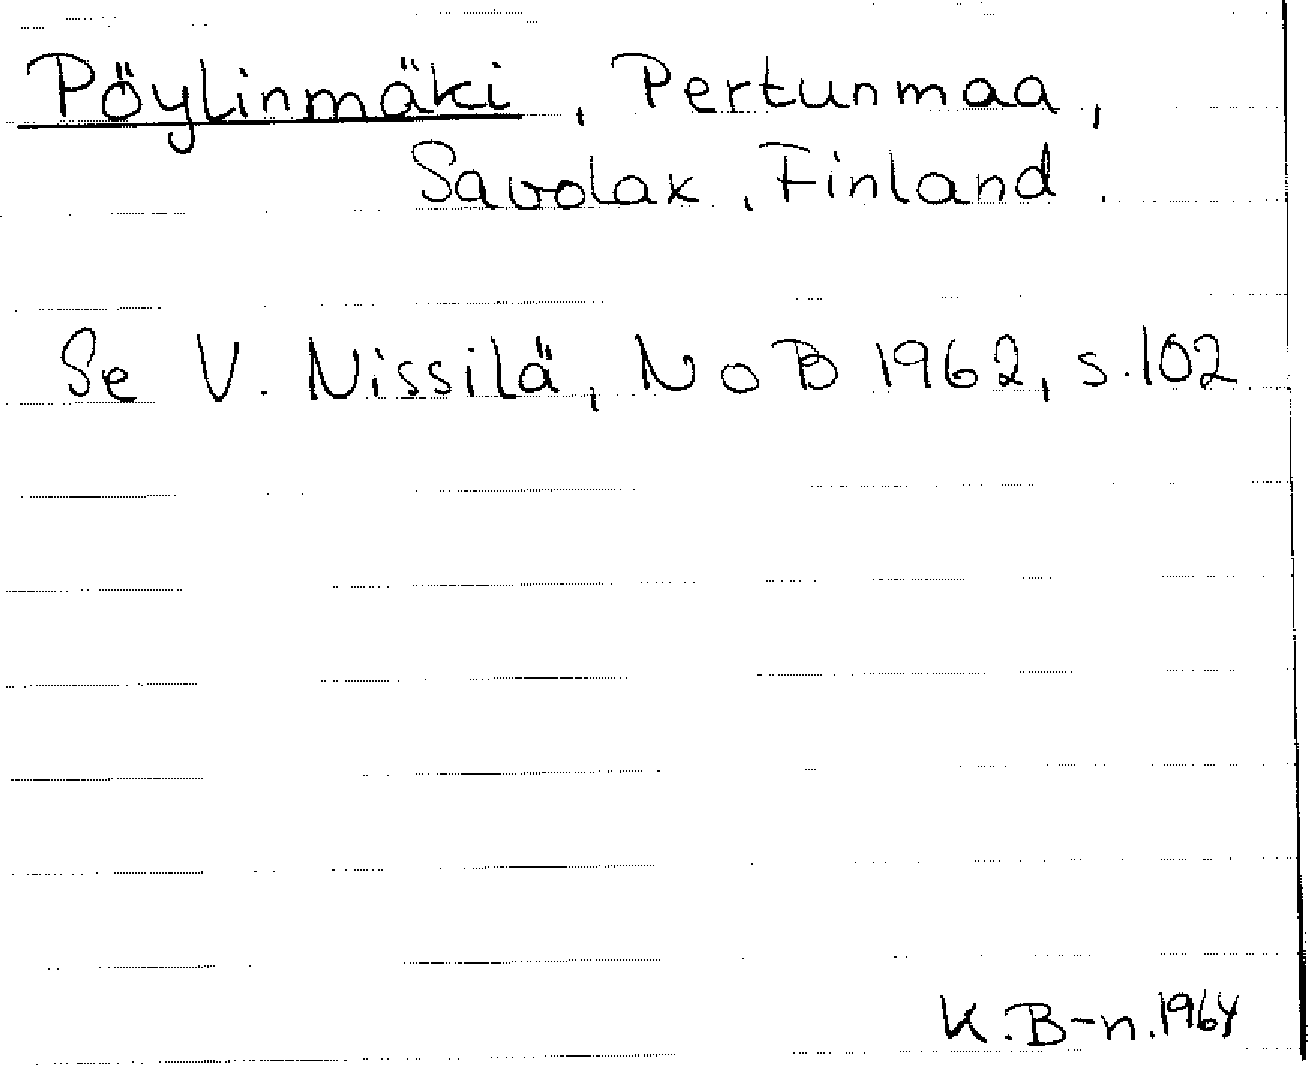 Pöylinmäki, Pertunmaa,
Savolax, Finland.
Se V. Nissilä, NoB 1962, s. 102
K.B-n. 1964